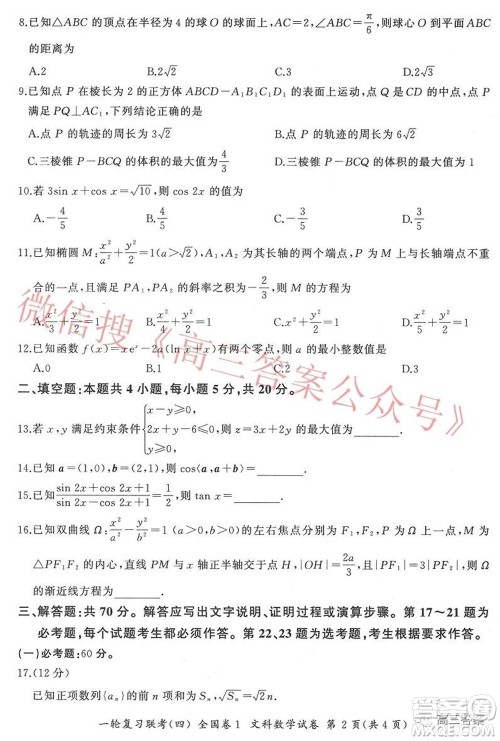 8.已知△ABC 的顶点在半径为4的球O的球面上,AC=2,∠ABC=π/6,则球心O到平面ABC
的距离为
A.2 B.2√3 C.3 D.3√2
9.已知点P在棱长为2的正方体ABCD-A₁B₁C₁D₁的表面上运动,点Q是CD的中点,点P
满足PQ⊥AC₁,下列结论正确的是
A.点P的轨迹的周长为3√2 B.点P的轨迹的周长为6√2
C.三棱锥P-BCQ的体积的最大值为4/3 D.三棱锥P-BCQ的体积的最大值为1
10.若3sin x+cos x=√10,则cos 2x的值为
A.-4/5 B.4/5 C.-3/5 D.3/5
11.已知椭圆M:x²/a²+y²/2=1(a>√2),A₁,A₂为其长轴的两个端点,P为M上与A₁,A₂不重
合的一点,且满足PA₁,PA₂的斜率之积为-2/3,则M的方程为
A.x²/6+y²/2=1 B.x²/4+y²/2=1 C.x²+y²/2=1 D.x²/3+y²/2=1
12.已知函数f(x)=xeˣ-2a(ln x+x)有两个零点,则a的最小整数值是
A.0 B.1 C.2 D.3
二、填空题:本题共4小题,每小题5分,共20分。
13.若x,y满足约束条件{x-y≥0, x+y-6≤0, y≥0,则z=3x+2y的最大值是
14.已知a=(1,0),b=(1,2),则cos⟨a,a+b⟩=
15.已知(sin 2x+cos 2x+1)/(sin 2x-cos 2x+1)=1/2,则tan x=
16.已知双曲线Ω:x²/a²-y²/b²=1的左右焦点分别为F₁,F₂,P为Ω右支上一点,M为
△PF₁F₂的内心,直线PM与x轴正半轴交于点H,|OH|=2a/3,且|PF₁|=3|PF₂|,则Ω
的渐近线方程为
三、解答题:共70分。解答应写出文字说明、证明过程或演算步骤。第17~21题为
必考题,每个试题考生都必须作答。第22、23题为选考题,考生根据要求作答。
(一)必考题:60分。
17.(12分)
已知各项为正的数列{aₙ}的前n项和为Sₙ,
一轮复习联考(四) 全国卷1 文科数学试卷 第2页(共4页)
微信搜《高三答案公众号》
高三答案